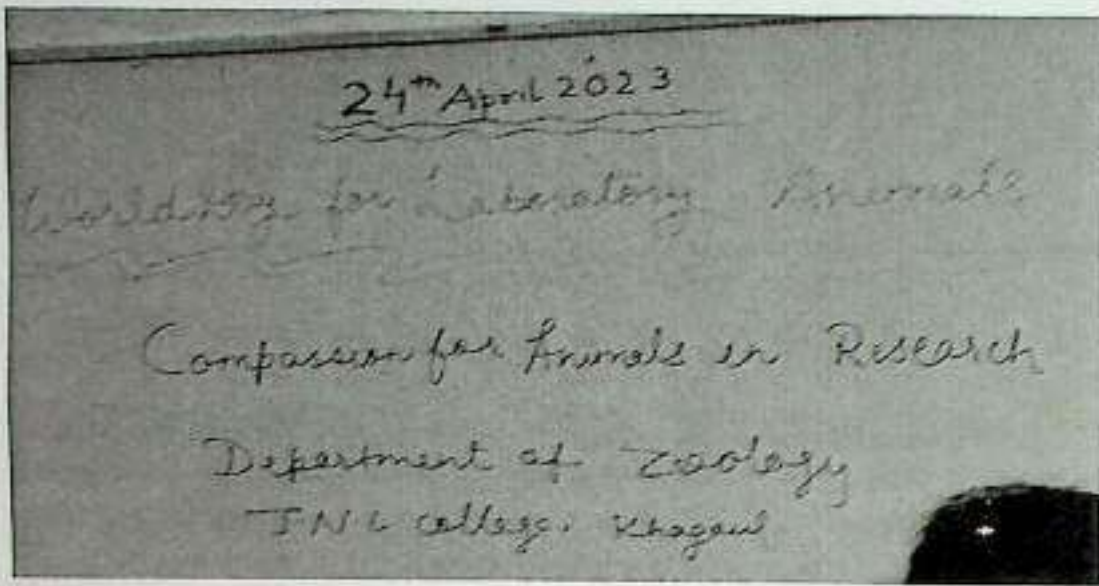 24th April 2023
World day for Laboratory Animals
Compassion for Animals in Research
Department of Zoology
J.N.L College, Khagaul